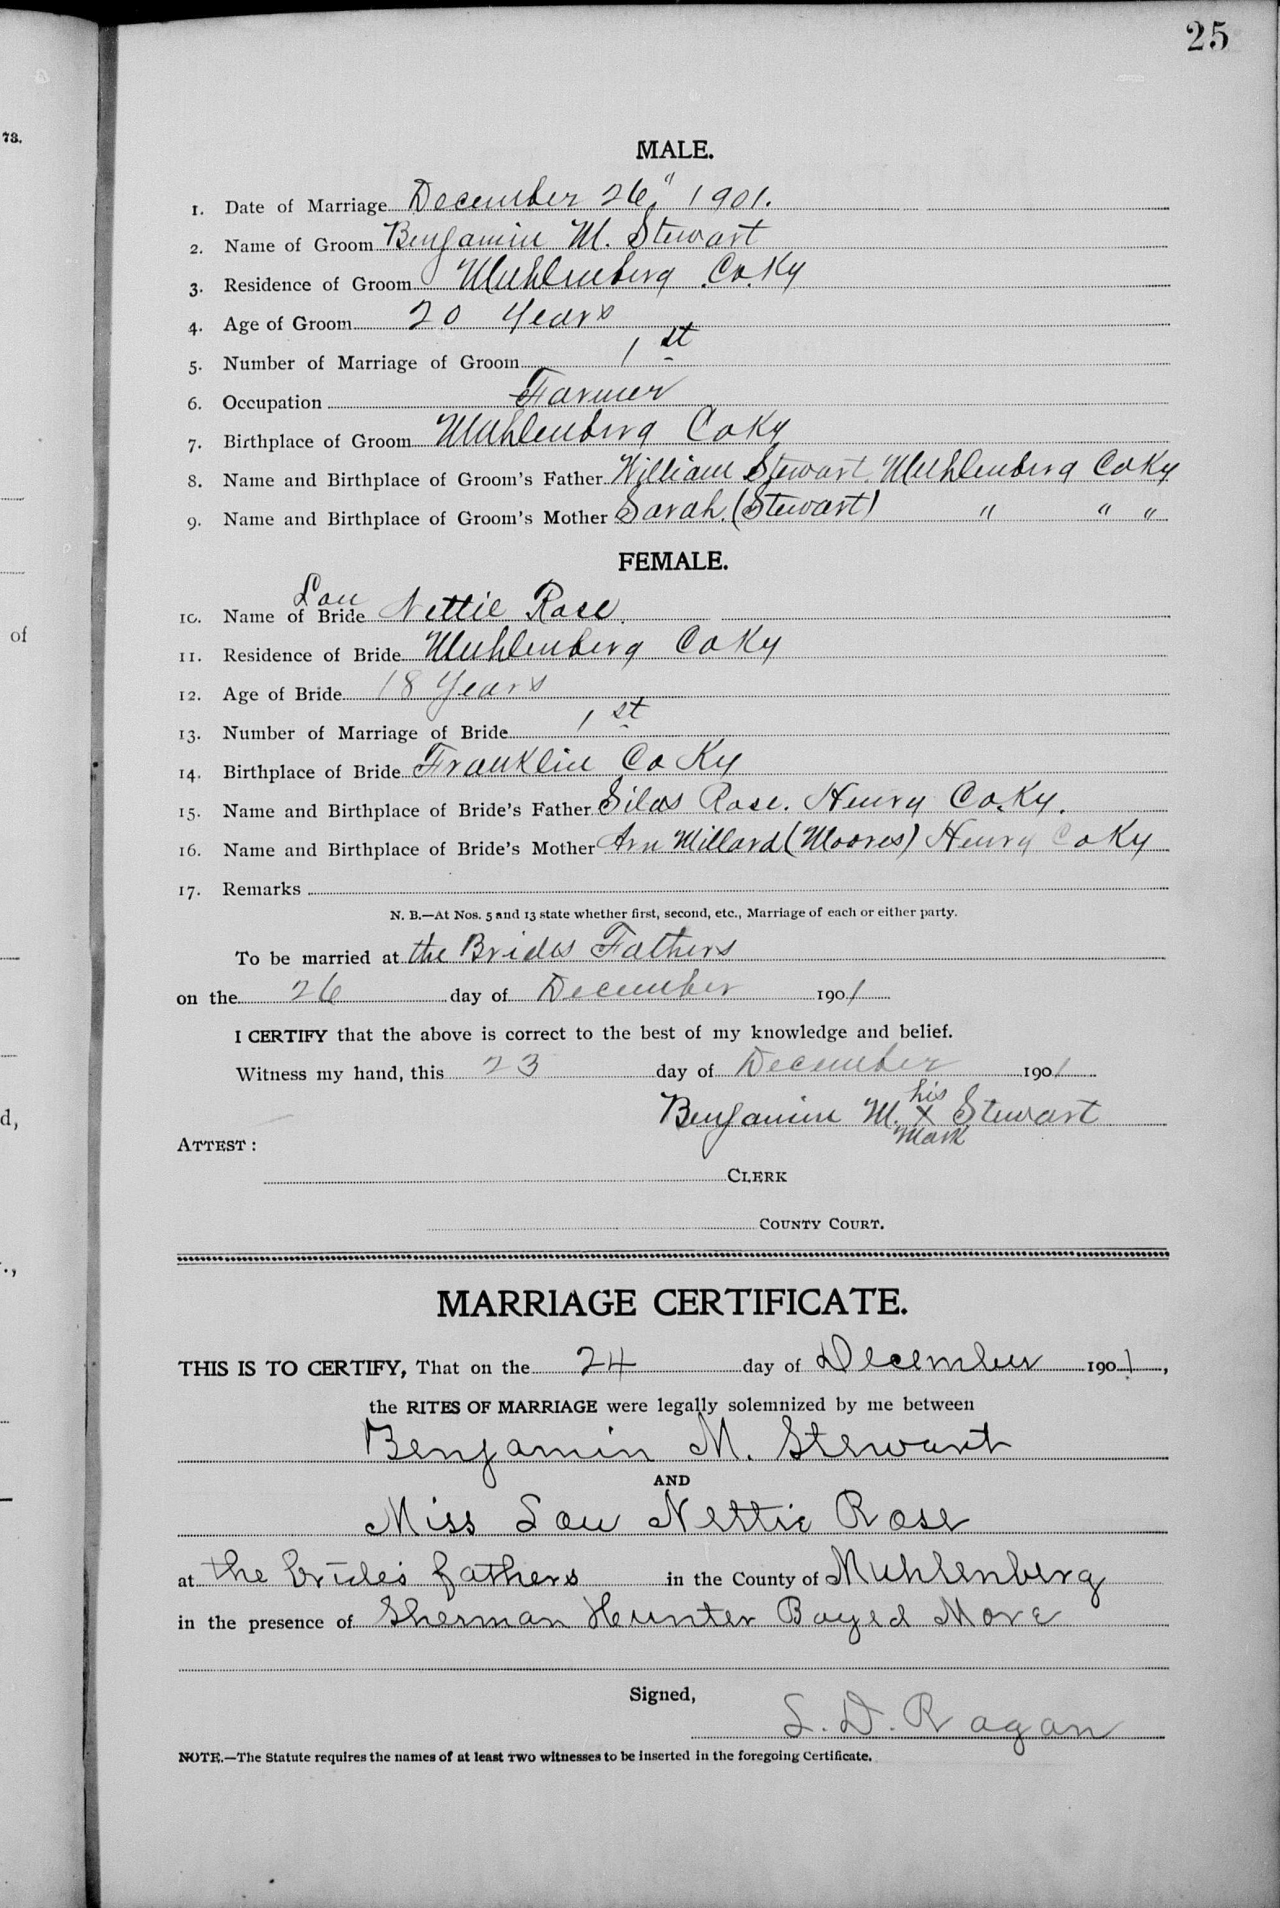 25
73.
MALE.
1. Date of Marriage December 26," 1901.
2. Name of Groom Benjamin M. Stewart
3. Residence of Groom Muhlenberg Co. Ky
4. Age of Groom 20 Years
5. Number of Marriage of Groom 1st
6. Occupation Farmer
7. Birthplace of Groom Muhlenberg Co Ky
8. Name and Birthplace of Groom's Father William Stewart. Muhlenberg Co Ky
9. Name and Birthplace of Groom's Mother Sarah. (Stewart) " " "
FEMALE.
Lou
10. Name of Bride Nettie Rose.
of
11. Residence of Bride Muhlenberg Co Ky
12. Age of Bride 18 Years
13. Number of Marriage of Bride 1st
14. Birthplace of Bride Franklin Co Ky
15. Name and Birthplace of Bride's Father Silas Rose. Henry Co. Ky.
16. Name and Birthplace of Bride's Mother Ann Millard (Moores) Henry Co Ky
17. Remarks
N. B.—At Nos. 5 and 13 state whether first, second, etc., Marriage of each or either party.
To be married at the Brides Fathers
on the 26 day of December 1901
I CERTIFY that the above is correct to the best of my knowledge and belief.
Witness my hand, this 23 day of December 1901
his
Benjamin M. X Stewart
mark
d,
ATTEST:
CLERK
COUNTY COURT.
MARRIAGE CERTIFICATE.
THIS IS TO CERTIFY, That on the 24 day of December 1901,
the RITES OF MARRIAGE were legally solemnized by me between
Benjamin M. Stewart
AND
Miss Lou Nettie Rose
at the bride's fathers in the County of Muhlenberg
in the presence of Sherman Hunter Boyed More
Signed,
L. D. Ragan
NOTE.—The Statute requires the names of at least two witnesses to be inserted in the foregoing Certificate.